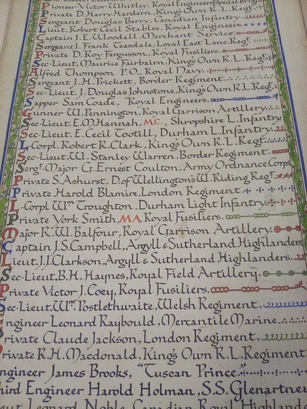 Pioneer Victor Whitley, Royal Engineers
Private D. Harry Harden, King's Own R.L. Regt.
Sergeant Douglas Berry, Canadian Infantry
Lieut. Robert Cecil Stables, Royal Engineers
Captain I.E. Mercantile Service
Sergeant J. Frank Teasdale, Loyal East Lanc. Regt.
Private D. Roy Ferguson, Royal Fusiliers
Sec-Lieut. Maurice Fairbairn, King's Own R.L. Regt.
Alfred Thompson, P.O., Royal Navy
Sergeant J.H. Beckett, Border Regiment
Sec-Lieut. J. Douglas Johnstone, King's Own R.L. Regt.
Sapper Sam Coade, Royal Engineers
Gunner W. Rennington, Royal Garrison Artillery
Sec-Lieut. E. M. Hannah, MC. Shropshire L. Infantry
Sec-Lieut. E. Cecil Tootill, Durham L. Infantry
L/Corpl. Robert K. Clark, King's Own R.L. Regt.
Sec-Lieut. W. Stanley Warren, Border Regiment
Sergt. Major G. Ernest Coulton, Army Ordnance Corps
Private S. Ashurst, D. of Wellington's W. Riding Reg.
Private Harold Blamir, London Regiment
L/Corpl. Wm. Troughton, Durham Light Infantry
Private York Smith, MA. Royal Fusiliers
Major K.W. Balfour, Royal Garrison Artillery
Captain J.S. Campbell, Argyll & Sutherland Highlanders
Lieut. J.J. Clarkson, Argyle & Sutherland Highlanders
Sec-Lieut. B.H. Haynes, Royal Field Artillery
Private Victor J. Coey, Royal Fusiliers
Sec-Lieut. Wm. Postlethwaite, Welsh Regiment
Engineer Leonard Raybould, Mercantile Marine
Private Claude Jackson, London Regiment
Private R.H. Macdonald, King's Own R.L. Regiment
Engineer James Brooks, "Tuscan Prince"
Third Engineer Harold Holman, S.S. Glenartney
Leonard Noble, Canadian Royal Highland